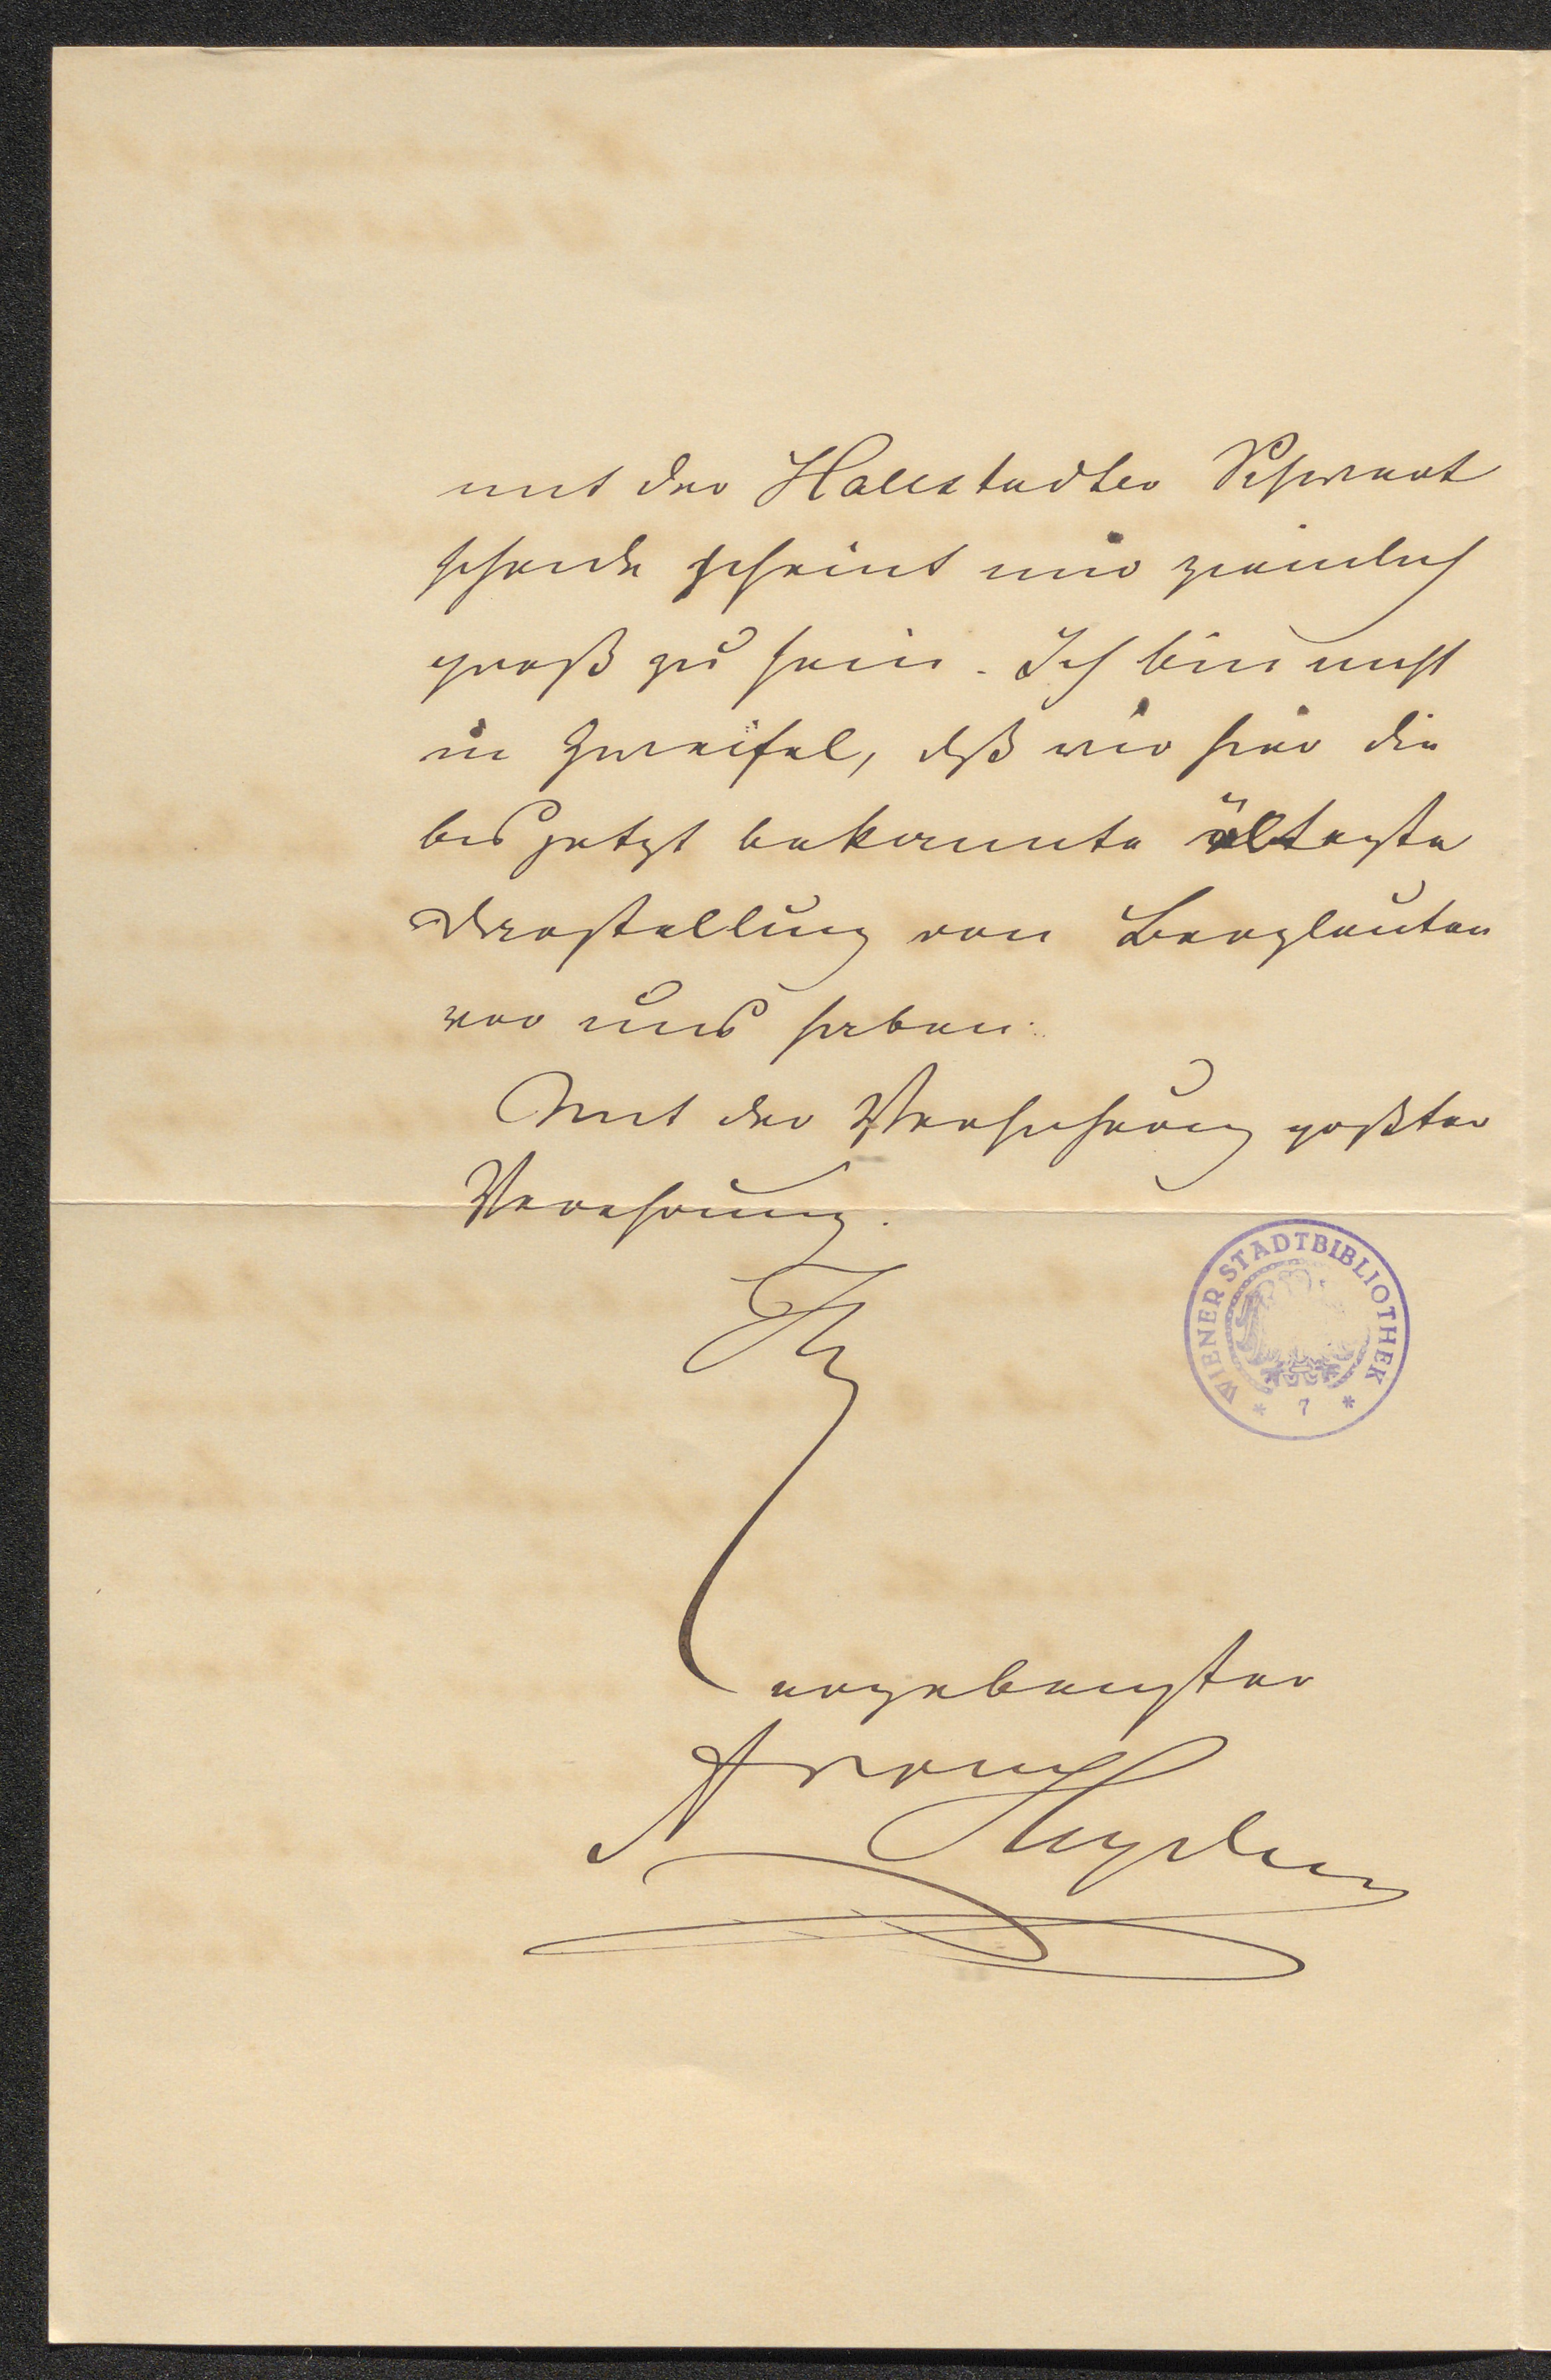 mit der Hallstadter Schwert
scheide scheint mir ziemlich
groß zu sein. Ich bin nicht
in Zweifel, dß wir hier die
bis jetzt bekannte älteste
Darstellung von Bergleuten
vor uns haben.
Mit der Versicherung größter
Verehrung.
Ihr
WIENER STADTBIBLIOTHEK
* 7 *
ergebenster
A von Heyden